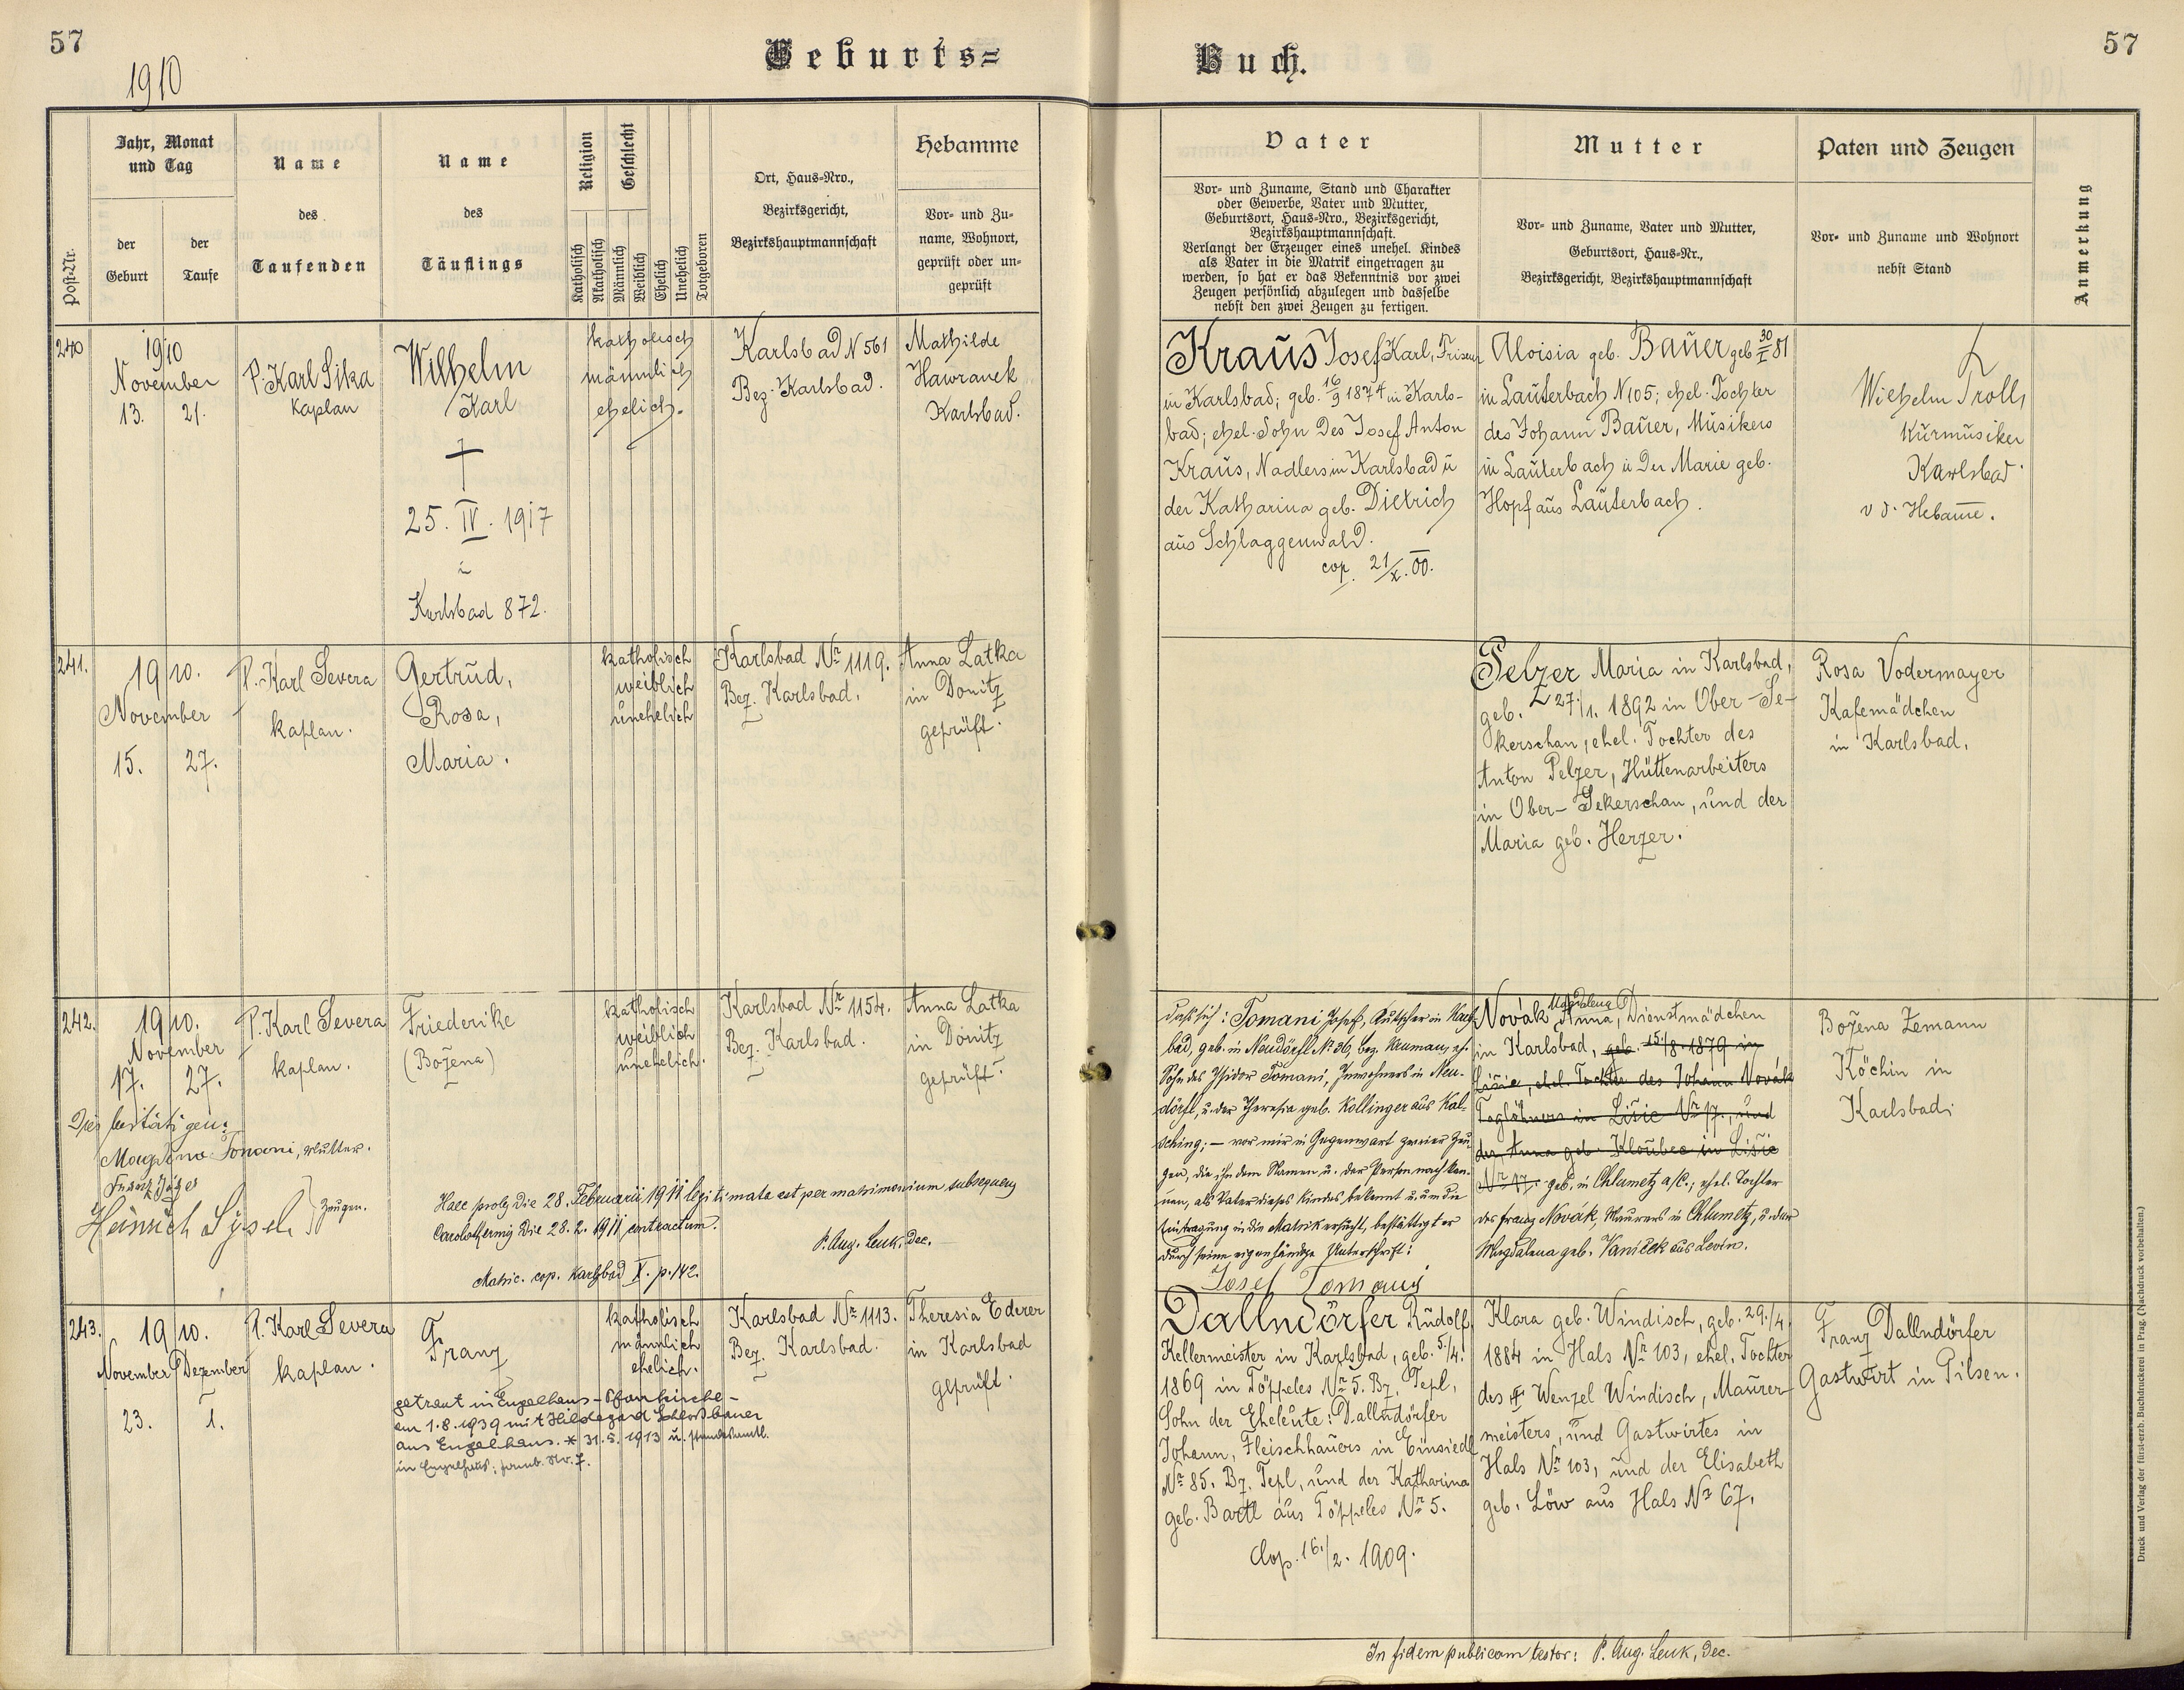 57
1910
Geburts=
Buch.
57
Post-Nr.
Jahr, Monat
und Tag
der
Geburt
der
Taufe
Name
des
Taufenden
Name
des
Täuflings
Religion
Geschlecht
Katholisch
Akatholisch
Männlich
Weiblich
Ehelich
Unehelich
Totgeboren
Ort, Haus-Nro.,
Bezirksgericht,
Bezirkshauptmannschaft
Hebamme
Vor- und Zu-
name, Wohnort,
geprüft oder un-
geprüft
Vater
Vor- und Zuname, Stand und Charakter
oder Gewerbe, Vater und Mutter,
Geburtsort, Haus-Nro., Bezirksgericht,
Bezirkshauptmannschaft.
Verlangt der Erzeuger eines unehel. Kindes
als Vater in die Matrik eingetragen zu
werden, so hat er das Bekenntnis vor zwei
Zeugen persönlich abzulegen und dasselbe
nebst den zwei Zeugen zu fertigen.
Mutter
Vor- und Zuname, Vater und Mutter,
Geburtsort, Haus-Nr.,
Bezirksgericht, Bezirkshauptmannschaft
Paten und Zeugen
Vor- und Zuname und Wohnort
nebst Stand
Anmerkung
240
1910
November
13. 21.
P. Karl Sika
Kaplan
Wilhelm
Karl
†
25. IV. 1917
Karlsbad 872.
katholisch
männlich
ehelich.
Karlsbad N 561
Bez. Karlsbad.
Mathilde
Hawranek
Karlsbad.
Kraus Josef Karl, Friseur
in Karlsbad; geb. 16/9 1874 in Karls-
bad; ehel. Sohn des Josef Anton
Kraus, Nadlers in Karlsbad u
der Katharina geb. Dietrich
aus Schlaggenwald.
cop. 21/X. 00.
Aloisia geb. Bauer geb 30/I 81
in Lauterbach N 105; ehel. Tochter
des Johann Bauer, Musikers
in Lauterbach u der Marie geb.
Hopf aus Lauterbach.
Wilhelm Troll,
Kurmusiker
Karlsbad.
v d. Hebamme.
241.
1910.
November
15. 27.
P. Karl Severa
kaplan.
Gertrud,
Rosa,
Maria.
katholisch
weiblich
unehelich
Karlsbad Nr 1119.
Bez. Karlsbad.
Anna Latka
in Donitz
geprüft.
Pelzer Maria in Karlsbad,
geb. 27./1. 1892 in Ober-Se-
kerschan, ehel. Tochter des
Anton Pelzer, Hüttenarbeiters
in Ober-Sekerschan, und der
Maria geb. Herzer.
Rosa Vodermayer
Kafemädchen
in Karlsbad.
242.
1910.
November
17. 27.
P. Karl Severa
kaplan.
Friederike
(Božena)
katholisch
weiblich
unehelich.
Karlsbad Nr 1154.
Bez. Karlsbad.
Anna Latka
in Donitz
geprüft.
Dies bestätigen:
Magdalena Tomani, Mutter.
Heinrich
Zeugen.
Haec proles die 28. Februarii 1911 legitimata est per matrimonium subsequens
Carolothermis die 28. 2. 1911 contractum.
P. Aug. Leuk, Dec.
Matric. cop. Karlsbad X. p. 142.
Daß sich: Tomani Josef, Kutscher in Karls-
bad, geb. in Neudörfl Nr 36, bez. Neumau, eh.
Sohn des Isidor Tomani, Inwohners in Neu-
dörfl, u. der Theresia geb. Kollinger aus Kal-
sching; — vor mir in Gegenwart zweier Zeu-
gen, die ihn dem Namen u. der Person nach ken-
nen, als Vater dieses Kindes bekennt u. um die
Eintragung in die Matrik ersucht, bestättigt er
durch seine eigenhändige Unterschrift:
Josef Tomani
Magdalena
Novák Anna, Dienstmädchen
in Karlsbad, geb. 15./8. 1879 in
Lišic, ehel. Tochter des Johann Novák
Taglöhners in Lišic Nr 17., und
der Anna geb. Kloubec in Lišic
Nr 17. geb. in Chlumetz a/C.; ehel. Tochter
des Franz Novák, Maurers in Chlumetz, u. der
Magdalena geb. Vaníček aus Levín.
Božena Zemann
Köchin in
Karlsbad.
243.
1910.
November Dezember
23. 1.
P. Karl Severa
kaplan.
Franz
getraut in Engelhaus-Pfarrkirche-
am 1.8.1939 mit Hildegard Schloßbauer
aus Engelhaus. * 31.5.1913 u. standesamtl.
katholisch
männlich
ehelich.
Karlsbad Nr 1113.
Bez. Karlsbad.
Theresia Ederer
in Karlsbad
geprüft.
Dallndörfer Rudolf,
Kellermeister in Karlsbad, geb. 5./4.
1869 in Töppeles Nr 5. Bz. Tepl,
Sohn der Eheleute: Dallndörfer
Johann, Fleischhauers in Einsiedl
Nr 85. Bz. Tepl, und der Katharina
geb. Bartl aus Töppeles Nr 5.
Cop. 16./2. 1909.
Klara geb. Windisch, geb. 29./4.
1884 in Hals Nr 103, ehel. Tochter
des Wenzel Windisch, Maurer-
meisters, und Gastwirtes in
Hals Nr 103, und der Elisabeth
geb. Löw aus Hals Nr 67.
Franz Dallndörfer
Gastwirt in Pilsen.
In fidem publicam testor: P. Aug. Leuk, Dec.
Druck und Verlag der fürst-erzb. Buchdruckerei in Prag. (Nachdruck vorbehalten.)